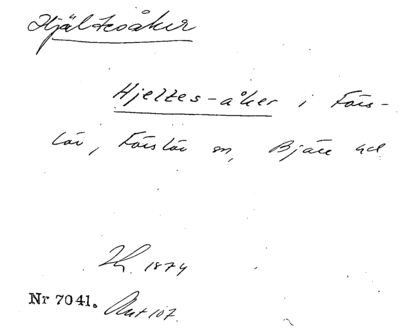 Hjältesåker
Hjeltes-åker i Förs-
löv, Förslöv sn, Bjäre hd
1874
Nr 7041. Ant 107.